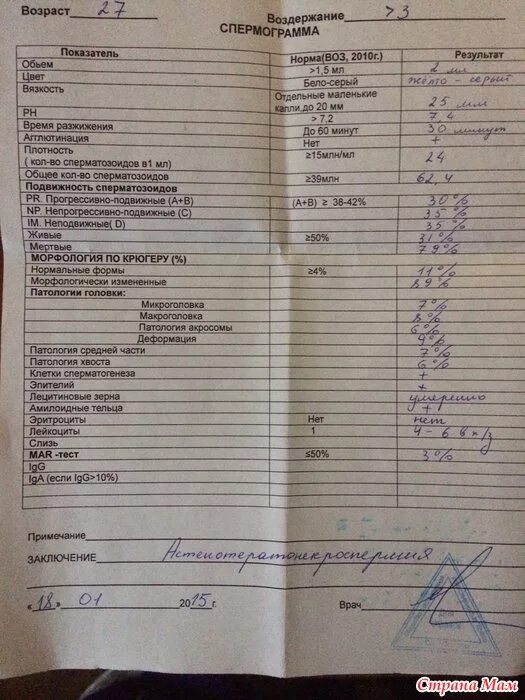 Возраст 27 Воздержание: >3
СПЕРМОГРАММА
Показатель Норма(ВОЗ, 2010г.) Результат
Обьем >1,5 мл 2 мл
Цвет Бело-серый жёлто-серый
Вязкость Отдельные маленькие капли,до 20 мм 25 мм
PH > 7,2 7,4
Время разжижения До 60 минут 30 минут
Агглютинация Нет +
Плотность
( кол-во сперматозоидов в1 мл) ≥15млн/мл 24
Общее кол-во сперматозоидов ≥39млн 62,4
Подвижность сперматозоидов
PR. Прогрессивно-подвижные (А+В) (А+В) ≥ 38-42% 30%
NP. Непрогрессивно-подвижные (С) 35%
IM. Неподвижные( D) 35%
Живые ≥50%
Мертвые 79%
МОРФОЛОГИЯ ПО КРЮГЕРУ (%)
Нормальные формы ≥4% 11%
Морфологически измененные 89%
Патологии головки:
Микроголовка 7%
Макроголовка 8%
Патология акросомы 6%
Деформация 9%
Патология средней части 7%
Патология хвоста 6%
Клетки сперматогенеза +
Эпителий +
Лецитиновые зерна умеренно
Амилоидные тельца +
Эритроциты Нет нет
Лейкоциты 1 4-6 в п/з
Слизь
MAR -тест ≤50% 3%
IgG
IgA (если IgG>10%)
Примечание
ЗАКЛЮЧЕНИЕ Астенотератонекроспермия
«18» 01 2015г. Врач
Страна Мам